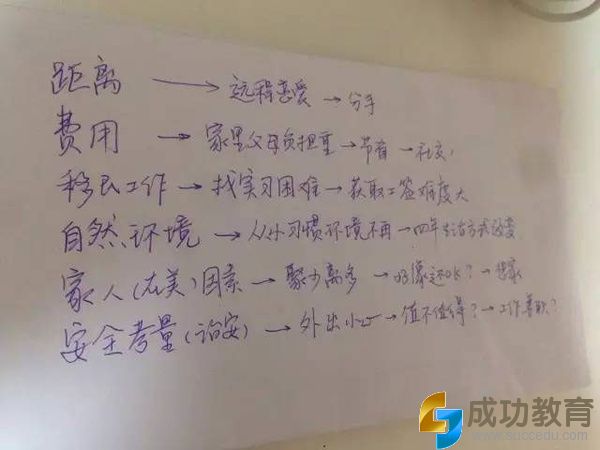 距离 → 远程恋爱 → 分手
费用 → 家里父母负担重 → 节省 → 社交
移民工作 → 找实习困难 → 获取工签难度大
自然环境 → 从小习惯环境不再 → 四年生活方式改变
家人(在美)因素 → 聚少离多 → 好像还OK? → 想家
安全考量(治安) → 外出小心 → 值不值得? → 工作兼职?
成功教育
www.succedu.com